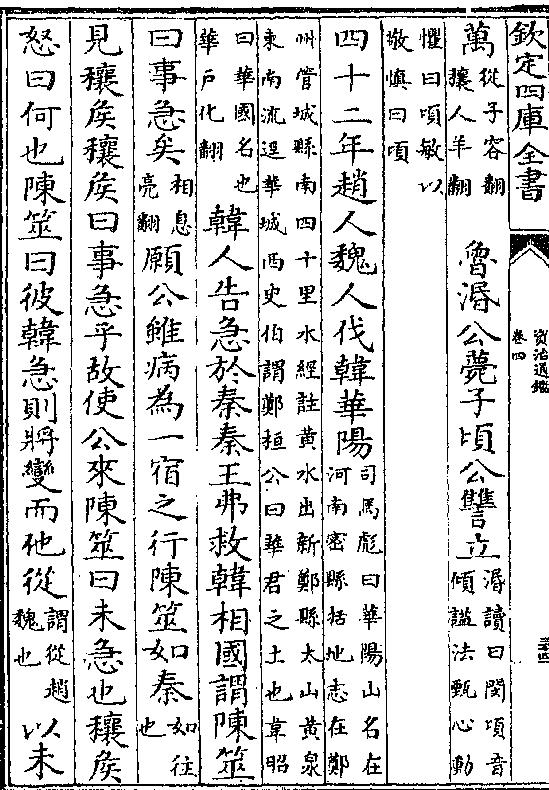 欽定四庫全書
資治通鑑
卷四
萬
從子容翻
攘人羊翻
魯湣公薨子頃公讐立
湣讀曰閔頃音
傾諡法甄心動
懼曰頃敏以
敬慎曰頃
四十二年趙人魏人伐韓華陽
司馬彪曰華陽山名在
河南密縣括地志在鄭
州管城縣南四十里水經註黄水出新鄭縣太山黄泉
東南流逕華城西史伯謂鄭桓公曰華君之土也韋昭
曰華國名也
華戶化翻
韓人告急於秦秦王弗救韓相國謂陳筮
曰事急矣
相息
亮翻
願公雖病為一宿之行陳筮如秦
如往
也
見穰侯穰侯曰事急乎故使公來陳筮曰未急也穰侯
怒曰何也陳筮曰彼韓急則將變而他從
謂從趙
魏也
以未